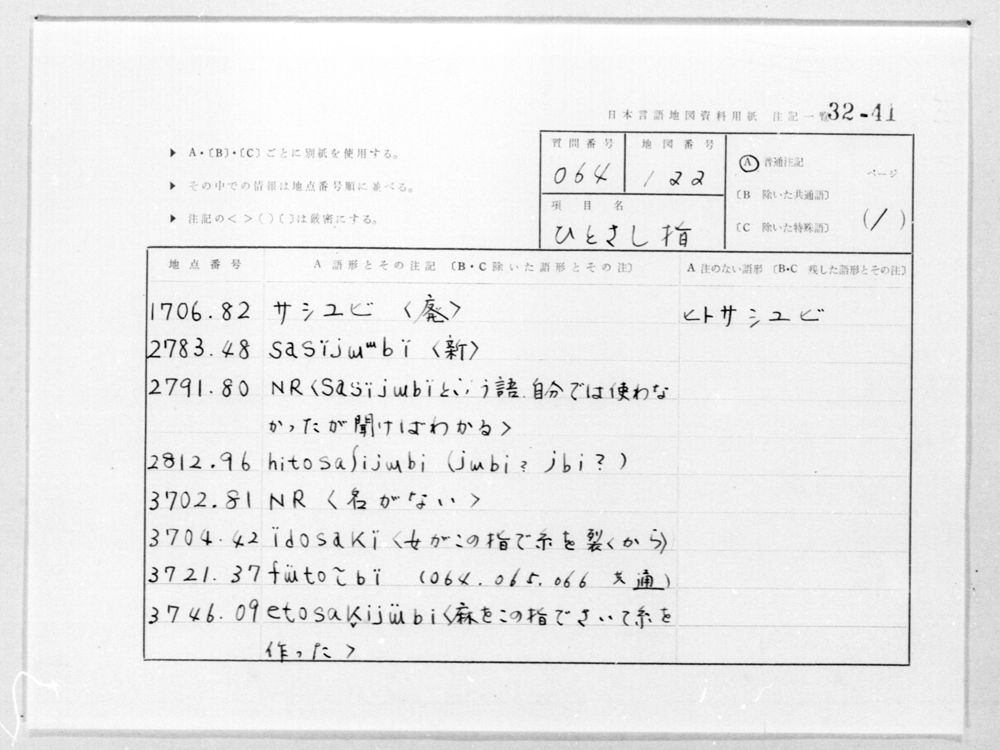 日本言語地図資料用紙 注記一覧 32-41
▶ A・〔B〕・〔C〕ごとに別紙を使用する。
▶ その中での情報は地点番号順に並べる。
▶ 注記の< >( )〔 〕は厳密にする。
質問番号 地図番号
064 122
項目名
ひとさし指
Ⓐ 普通注記
〔B 除いた共通語〕
〔C 除いた特殊語〕
ページ
(1)
地点番号 A 語形とその注記 〔B・C除いた語形とその注〕 A 注のない語形 〔B・C 残した語形とその注〕
1706.82 サシユビ 〈廃〉 ヒトサシユビ
2783.48 sasïjɯᵚbï 〈新〉
2791.80 NR〈sasïjɯbïという語.自分では使わな
かったが聞けばわかる〉
2812.96 hitosaʃijɯbi (jɯbi? jbi?)
3702.81 NR 〈名がない〉
3704.42 ïdosakï〈女がこの指で糸を裂くから〉
3721.37 fɯ̈to~bï (064.065.066 共通)
3746.09 etosaḳijɯ̈bi〈麻をこの指でさいて糸を
作った〉